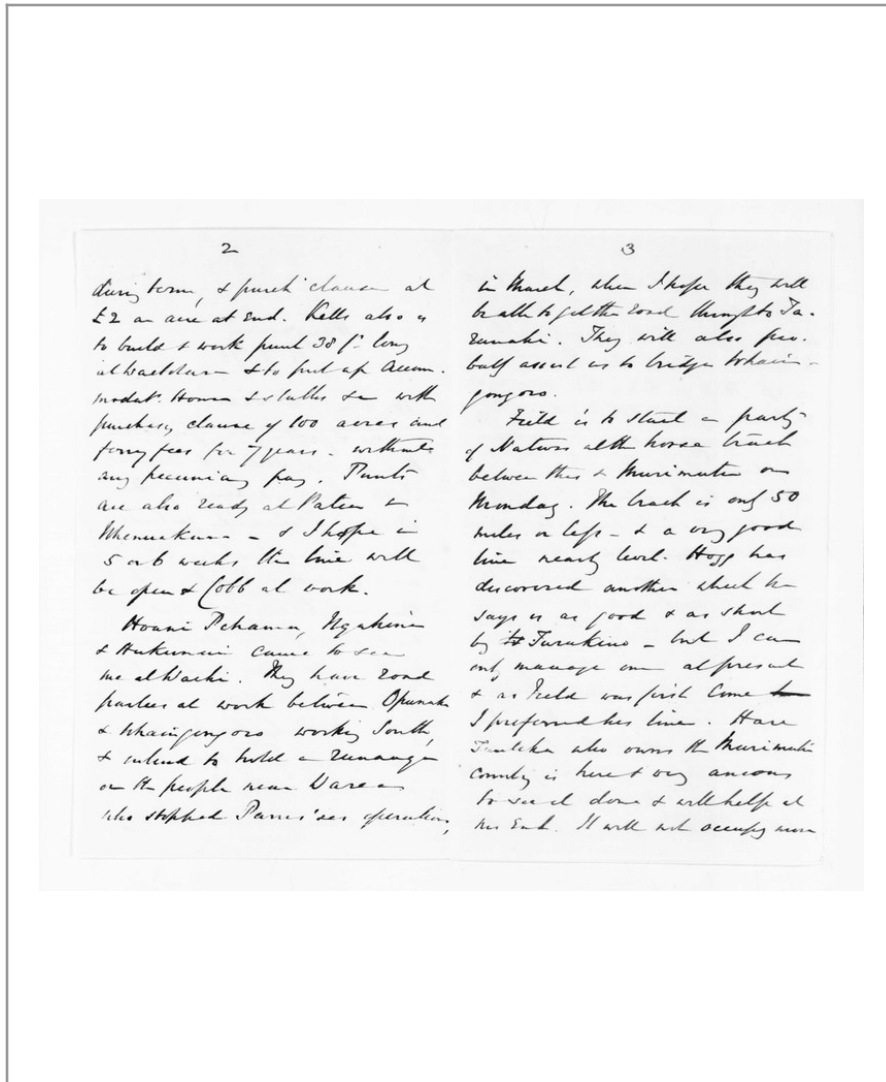 2
during term, & purch clause at
£2 an acre at end. Kells also is
to build & work punt 38 ft long
at & to put up Accom-
modatn House & stables &c with
purchasing clause of 100 acres and
ferry fees for 7 years - without
any pecuniary pay. Punts
are also ready at Patea &
Whenuakura - & I hope in
5 or 6 weeks the line will
be open & Cobb at work.
Hoani Pihama, Ngahina
& Hukanui came to see
me at Waihi. They have road
parties at work between Opunake
& Waingongoro working South,
& intend to hold a runanga
on the people near Warea
who stopped Parris's operations,
3
in March, when I hope they will
be able to get the road through to Ta-
ranaki. They will also pro-
bably assist us to bridge Wain-
gongoro.
Field is to start a party
of Natives at the horse track
between this & Murimutu on
Monday. The track is only 50
miles or less - & a very good
line nearly level. Hogg has
discovered another which he
says is as good & as short
by Turakina - but I can
only manage one at present
& as Field was first come
I preferred his line. Hare
who owns the Murimutu
country is here & very anxious
to see it done & will help at
his end. It will not occupy more